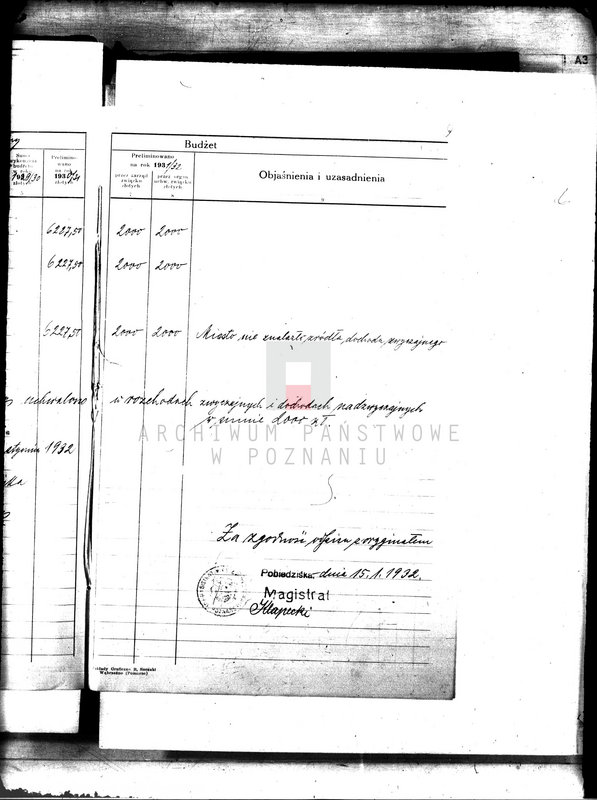 A3
Budżet
Preliminowano
wano
na rok
1930/31
złotych
Preliminowano
na rok 1931/32
przez zarząd
związku
złotych
przez organ
uchw. związku
złotych
Objaśnienia i uzasadnienia
7
8
9
6227,50 2000 2000
6227,50 2000 2000
6227,50 2000 2000 Miasto nie znalazło źródła dochodu zwyczajnego
uchwalono w rozchodach zwyczajnych i dochodach nadzwyczajnych
w sumie 2000 zł.
stycznia 1932
ARCHIWUM PAŃSTWOWE
W POZNANIU
Za zgodność odpisu z oryginałem
Pobiedziska, dnia 15.1.1932.
Magistrat
Kłapecki
Zakłady Graficzne B. Szczuki
Wąbrzeźno (Pomorze)